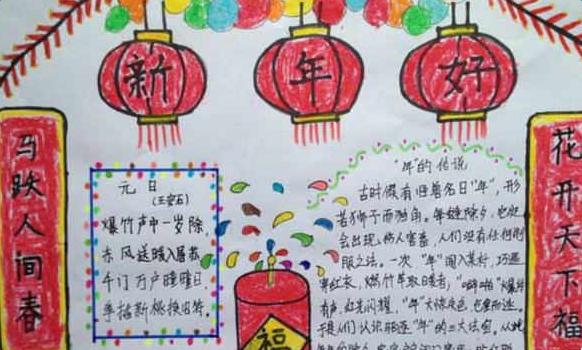 新年好
马跃人间春
花开天下福
元日
(王安石)
爆竹声中一岁除,
东风送暖入屠苏
千门万户曈曈日,
争插新桃换旧符。
福
"年"的传说
古时候有归兽名日"年",形
若狮子而独角。每逢除夕,它就
会出现,伤人害畜,人们没有任何制
服之法。一次"年"闯入某村,巧遇
穿红衣,燃竹竿取暖者,"噼啪"爆炸
有声,红光闪耀,"年"大惊失色,仓皇而逃。
于是人们认识驱逐"年"的三大法宝。从此